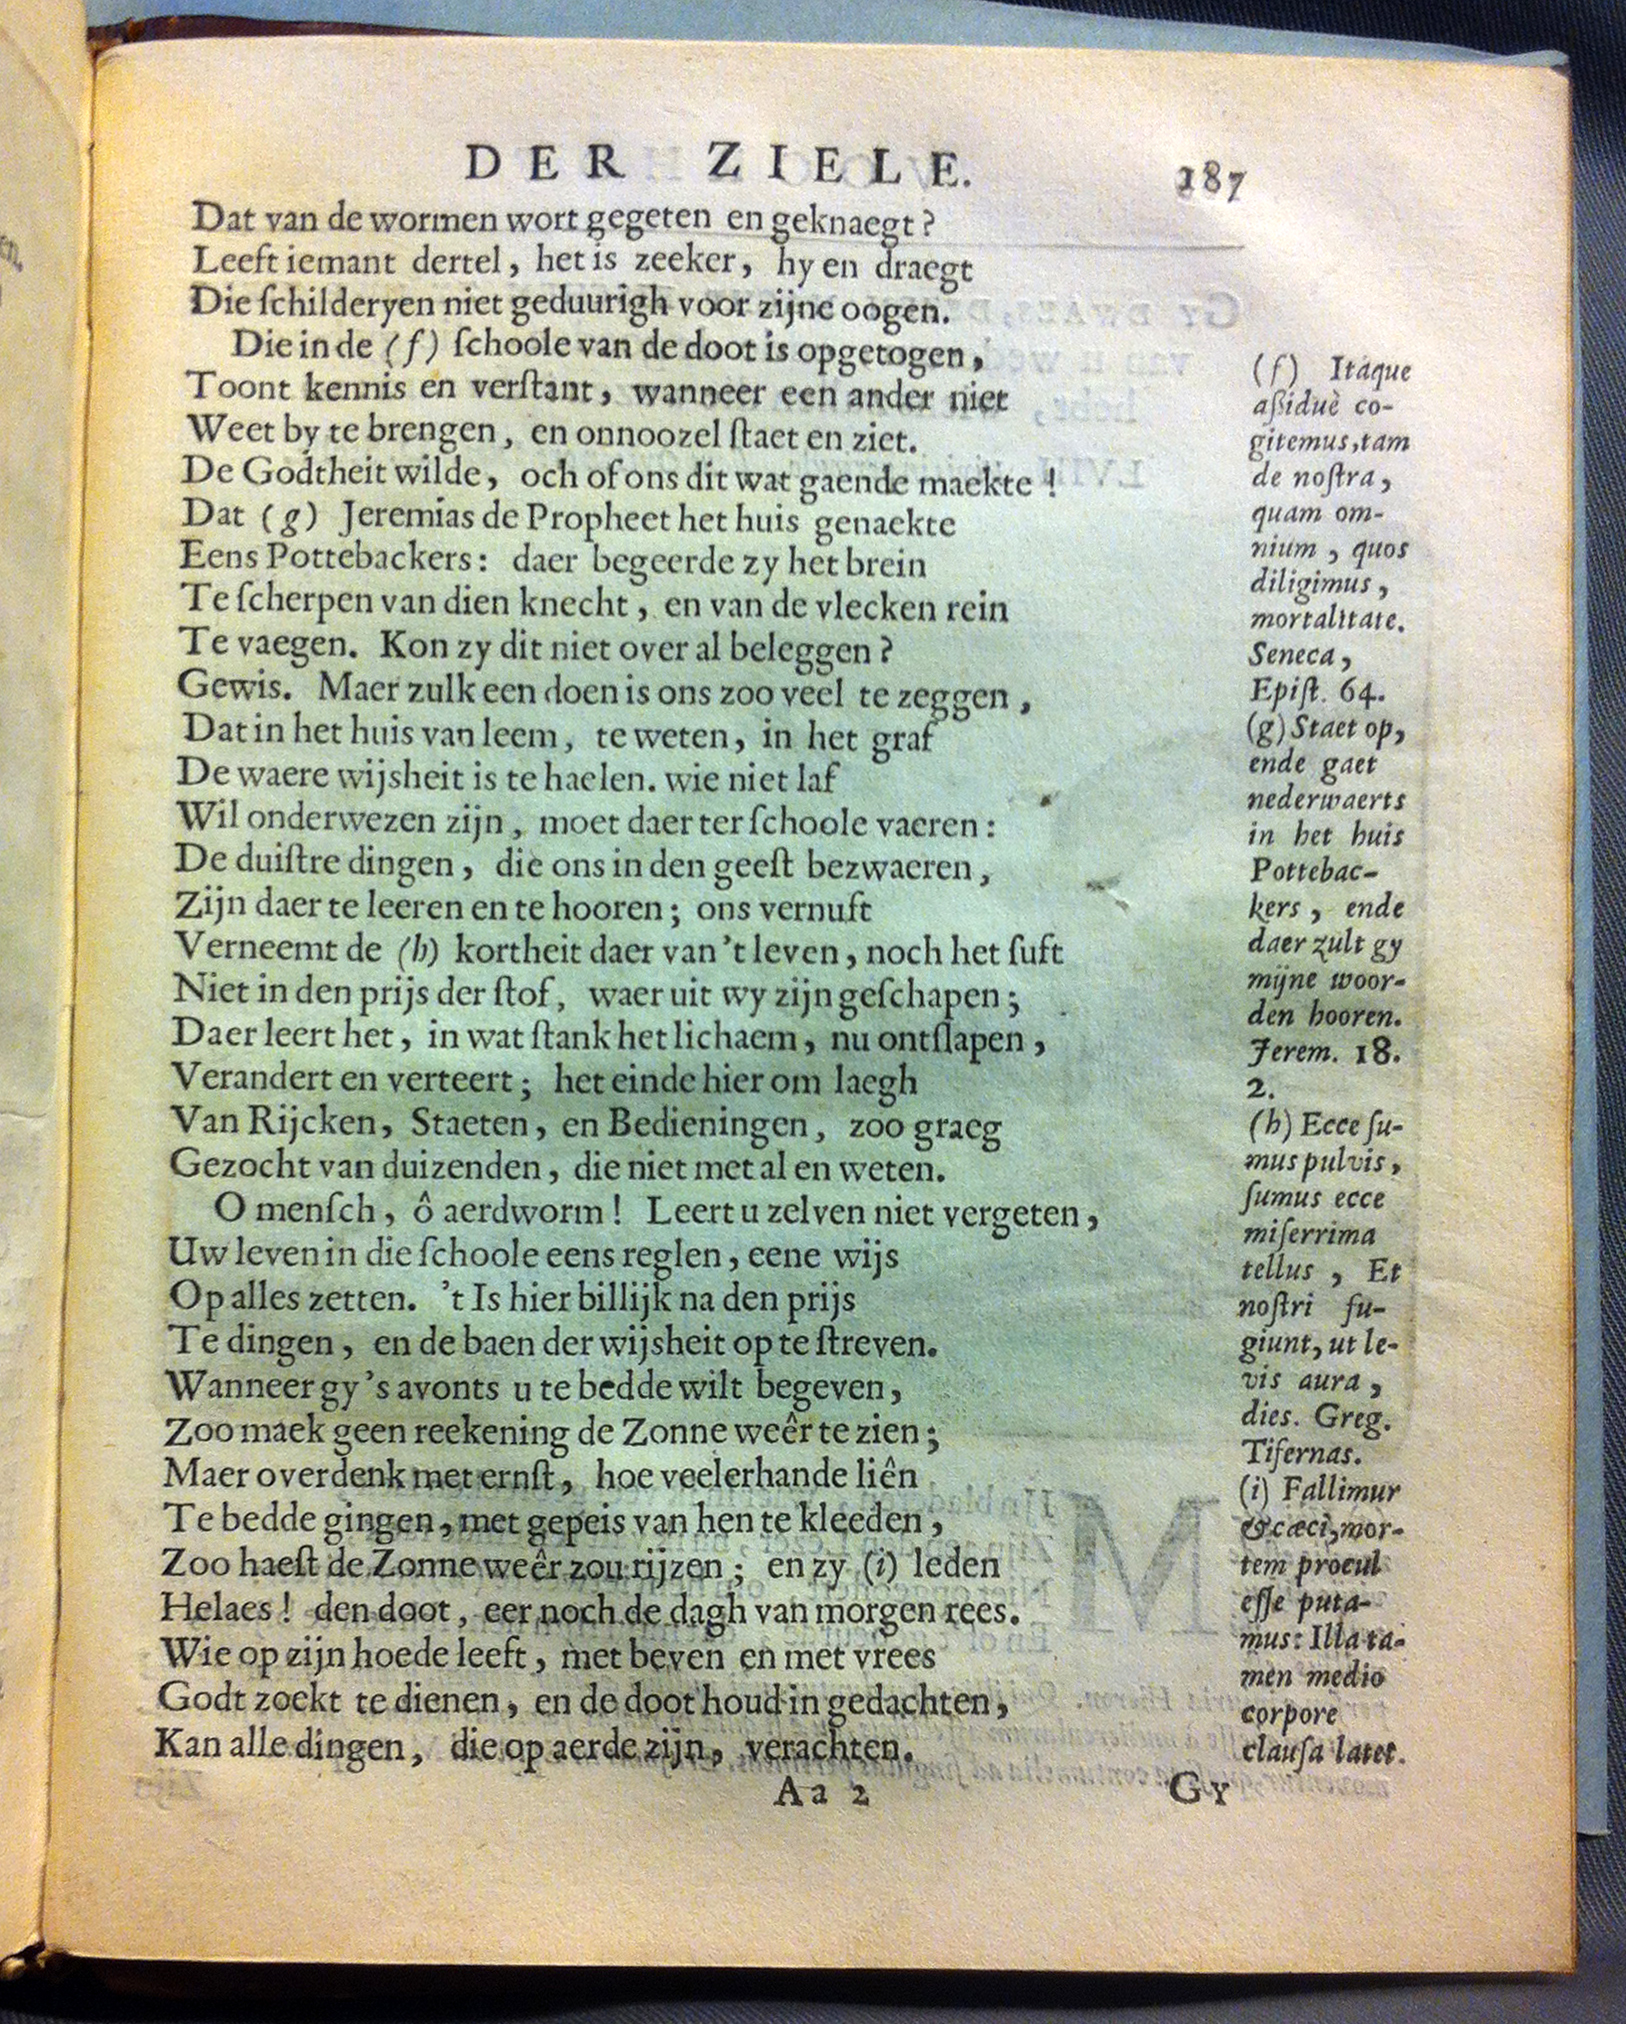 DER ZIELE. 187
Dat van de wormen wort gegeten en geknaegt?
Leeft iemant dertel, het is zeeker, hy en draegt
Die ſchilderyen niet geduurigh voor zijne oogen.
Die in de (f) ſchoole van de doot is opgetogen,
Toont kennis en verſtant, wanneer een ander niet
Weet by te brengen, en onnoozel ſtaet en ziet.
De Godtheit wilde, och of ons dit wat gaende maekte!
Dat (g) Jeremias de Propheet het huis genaekte
Eens Pottebackers: daer begeerde zy het brein
Te ſcherpen van dien knecht, en van de vlecken rein
Te vaegen. Kon zy dit niet over al beleggen?
Gewis. Maer zulk een doen is ons zoo veel te zeggen,
Dat in het huis van leem, te weten, in het graf
De waere wijsheit is te haelen. wie niet laf
Wil onderwezen zijn, moet daer ter ſchoole vaeren:
De duiſtre dingen, die ons in den geeſt bezwaeren,
Zijn daer te leeren en te hooren; ons vernuft
Verneemt de (h) kortheit daer van 't leven, noch het ſuft
Niet in den prijs der ſtof, waer uit wy zijn geſchapen;
Daer leert het, in wat ſtank het lichaem, nu ontſlapen,
Verandert en verteert; het einde hier om laegh
Van Rijcken, Staeten, en Bedieningen, zoo graeg
Gezocht van duizenden, die niet met al en weten.
O menſch, ô aerdworm! Leert u zelven niet vergeten,
Uw leven in die ſchoole eens reglen, eene wijs
Op alles zetten. 't Is hier billijk na den prijs
Te dingen, en de baen der wijsheit op te ſtreven.
Wanneer gy 's avonts u te bedde wilt begeven,
Zoo maek geen reekening de Zonne weêr te zien;
Maer overdenk met ernſt, hoe veelerhande liên
Te bedde gingen, met gepeis van hen te kleeden,
Zoo haeſt de Zonne weêr zou rijzen; en zy (i) leden
Helaes! den doot, eer noch de dagh van morgen rees.
Wie op zijn hoede leeft, met beven en met vrees
Godt zoekt te dienen, en de doot houd in gedachten,
Kan alle dingen, die op aerde zijn, verachten.
Aa 2 Gy
(f) Itaque
aßiduè co-
gitemus, tam
de noſtra,
quam om-
nium, quos
diligimus,
mortalitate.
Seneca,
Epiſt. 64.
(g) Staet op,
ende gaet
nederwaerts
in het huis
Pottebac-
kers, ende
daer zult gy
mijne woor-
den hooren.
Jerem. 18.
2.
(h) Ecce ſu-
mus pulvis,
ſumus ecce
miſerrima
tellus, Et
noſtri fu-
giunt, ut le-
vis aura,
dies. Greg.
Tifernas.
(i) Fallimur
& cæci, mor-
tem procul
eſſe puta-
mus: Illa ta-
men medio
corpore
clauſa latet.